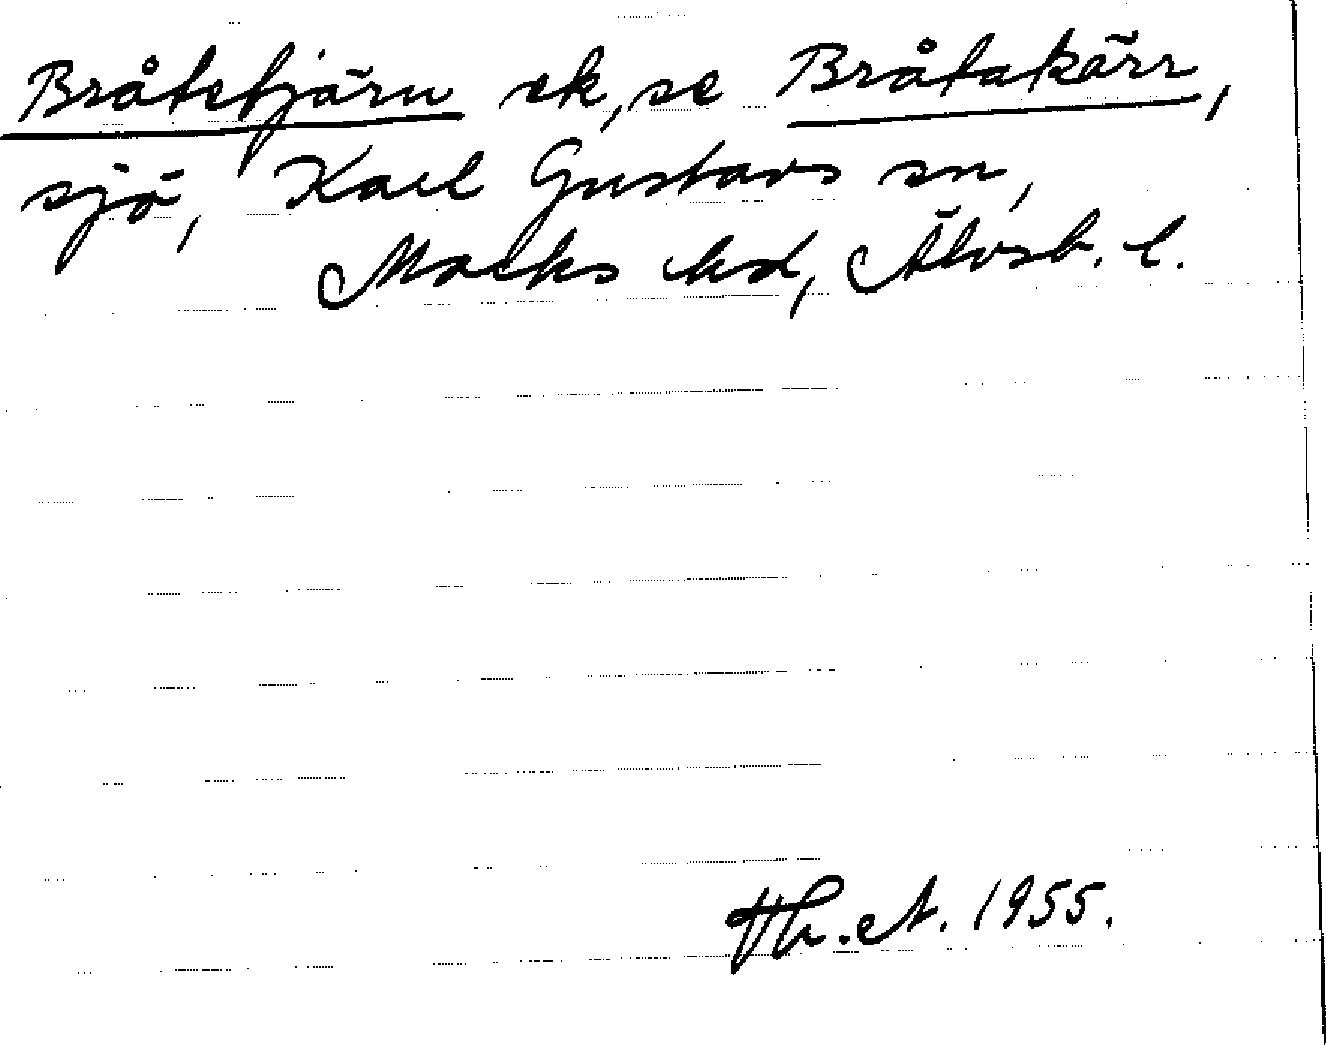 Bråtetjärn ek, se Bråtakärr,
sjö, Karl Gustavs sn,
Marks hd, Älvsb. l.
Th. A. 1955.